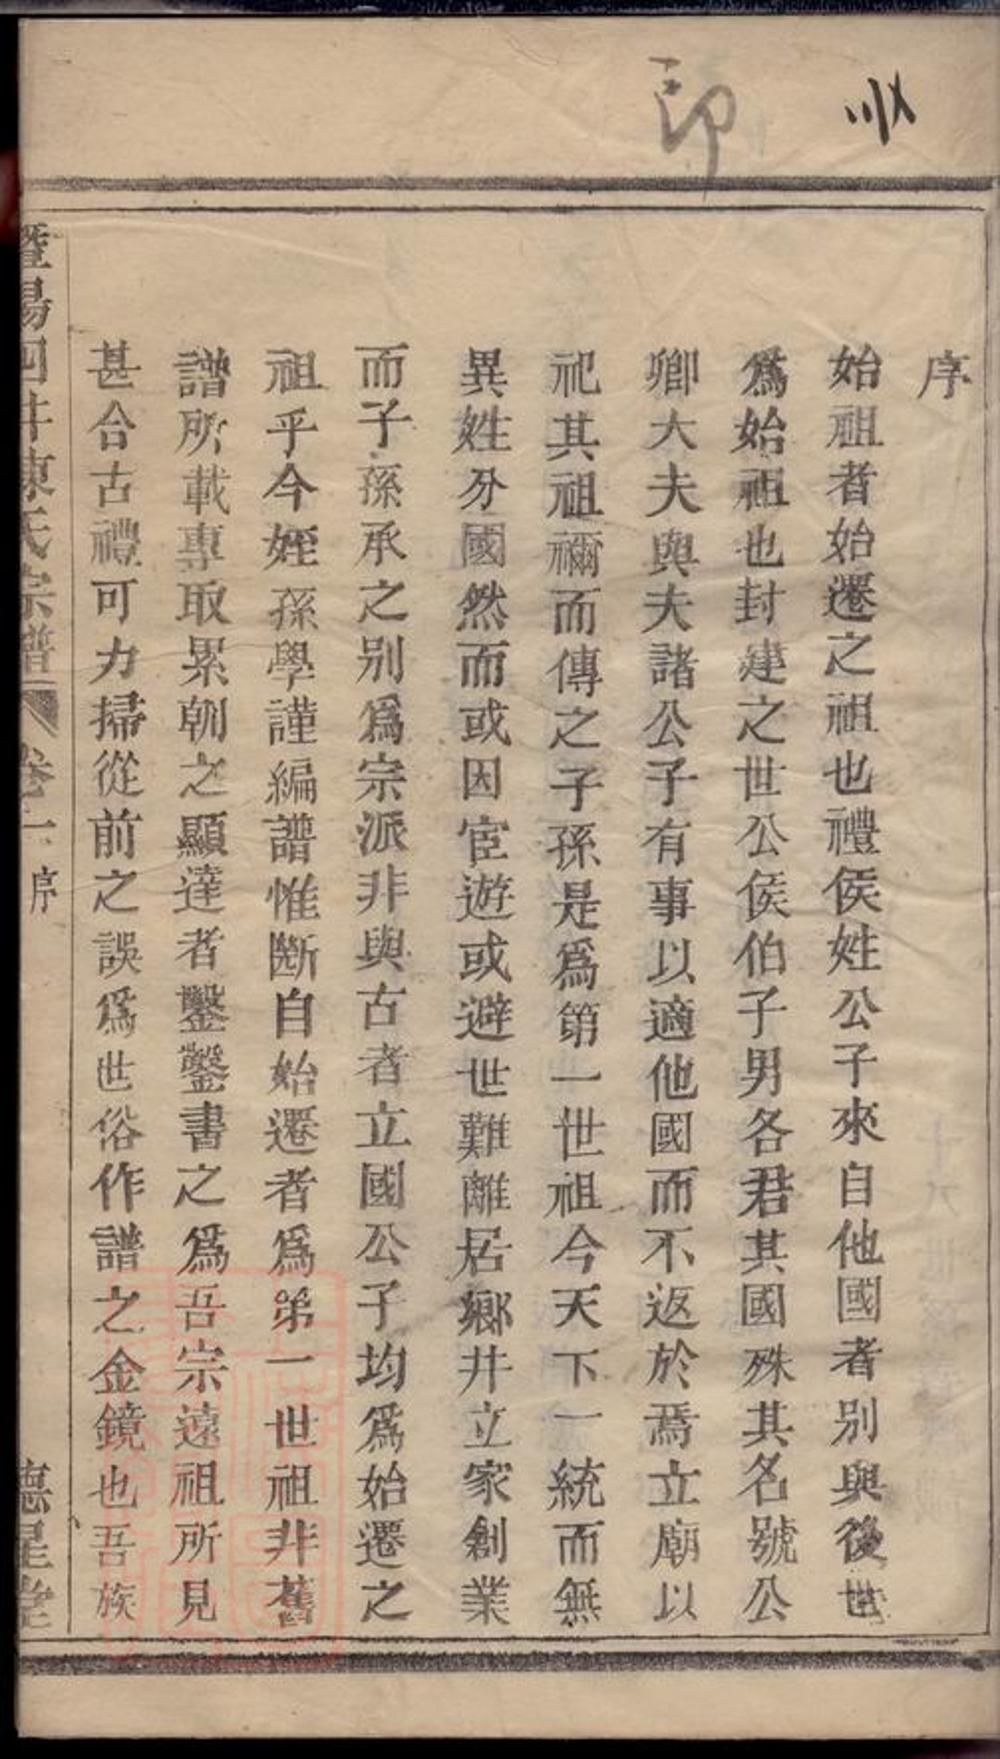 印
序
始祖者始遷之祖也禮侯姓公子來自他國者别與後世
爲始祖也封建之世公侯伯子男各君其國殊其名號公
卿大夫與夫諸公子有事以適他國而不返於焉立廟以
祀其祖禰而傳之子孫是爲第一世祖今天下一統而無
異姓分國然而或因宦遊或避世難離居鄉井立家創業
而子孫承之别爲宗派非與古者立國公子均爲始遷之
祖乎今姪孫學謹編譜惟斷自始遷者爲弟一世祖非舊
譜所載專取累朝之顯達者鑿鑿書之爲吾宗遠祖所見
甚合古禮可力掃從前之誤爲世俗作譜之金鏡也吾族
暨陽四井陳氏宗譜 卷一 序 德星堂